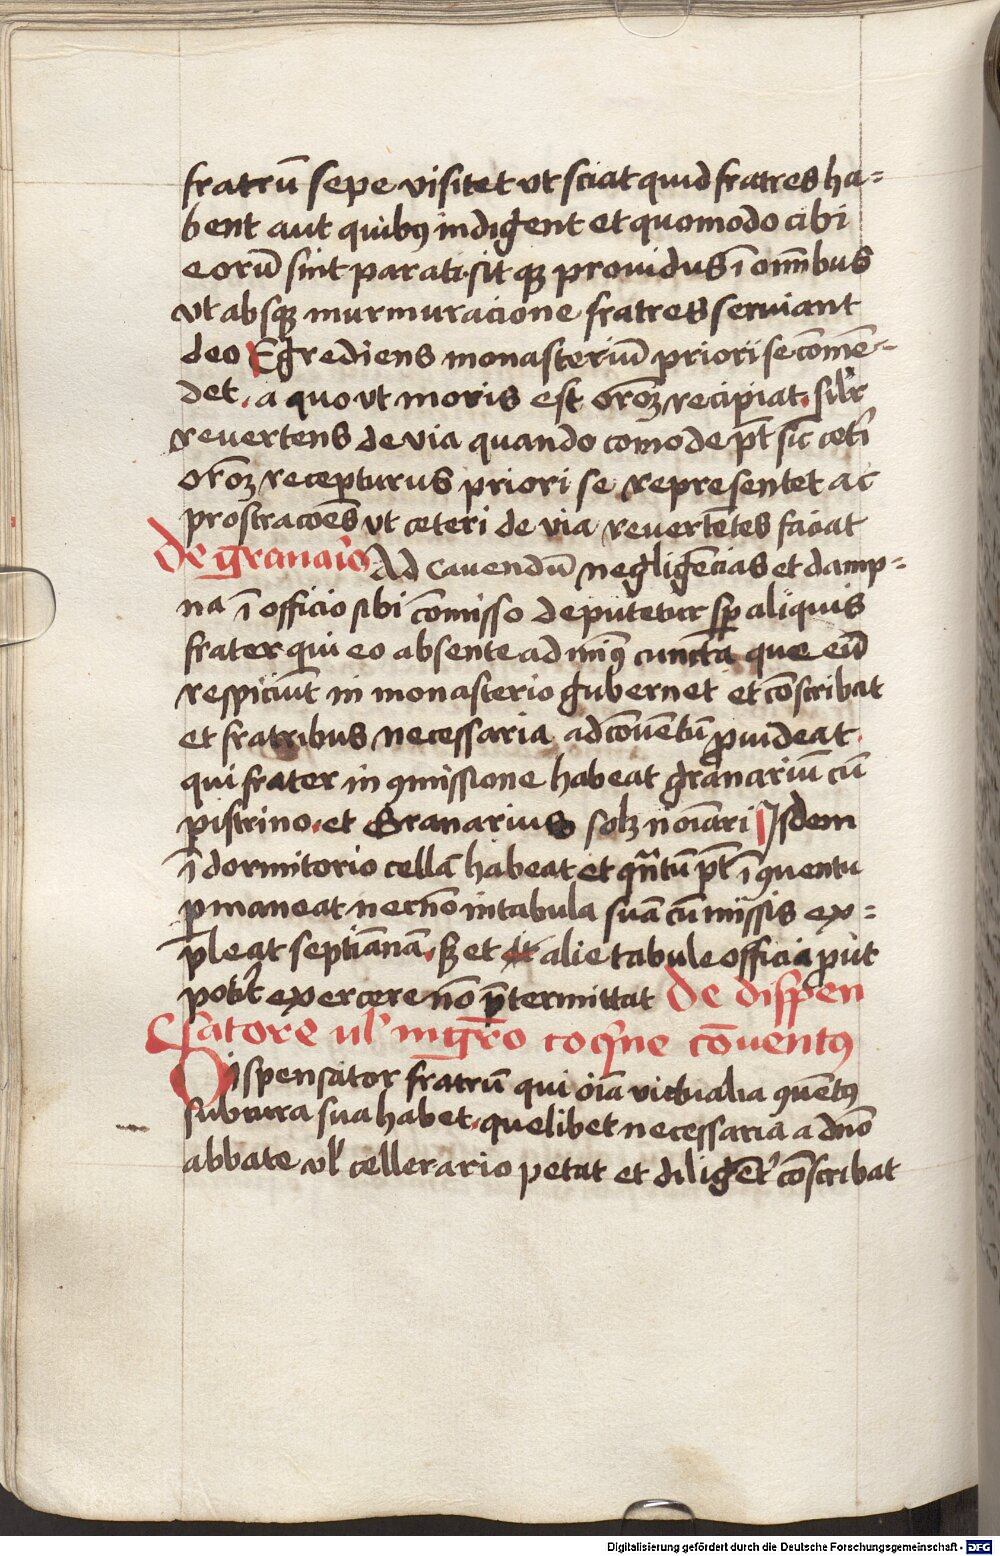 fratrū sepe visitet vt sciat quid fratres ha=
bent aut quibꝯ indigent et quomodo cibi
eorū sint parati sit qꝫ prouidus ī om̄ibus
vt absqꝫ murmuracione fratres seruiant
deo Egrediens monasteriū priori se com̄e=
det . a quo vt moris est or̄oꝫ recipiat . sil'r
reuertens de via quando comode p̄t sic cet'i
or̄oꝫ recepturus priori se representet ac
prostraco͞es vt ceteri de via reuertētes faciat
De granario Ad cauendū negligēcias et damp=
na ī officio sibi cōmisso deputetur sp̄ aliquis
frater qui eo absente ad minꝯ cuncta que eū
respiciūt in monasterio gubernet et cōscribat
et fratribus necessaria ad cōuentū ꝓuideat .
qui frater in ꝯmissione habeat granariū cū
pistrino . et Granarius solꝫ noīari Isdem
ī dormitorio cellā habeat et qn̄tū p̄t ī ꝯuentu
ꝑmaneat necnō in tabula suā cū missis ex=
pleat septimanā . Sꝫ et alie tabule officia ꝓut
pot'it exercere nō p̄termittat De dispen
satore ul' mgr̄o coq̄ne cōuentꝯ
Dispensator fratrū qui oīa victualia ꝯuētꝯ
sub cura sua habet . quelibet necessaria a dn̄o
abbate vl' cellerario petat et diligēt' cōscribat
Digitalisierung gefördert durch die Deutsche Forschungsgemeinschaft - DFG